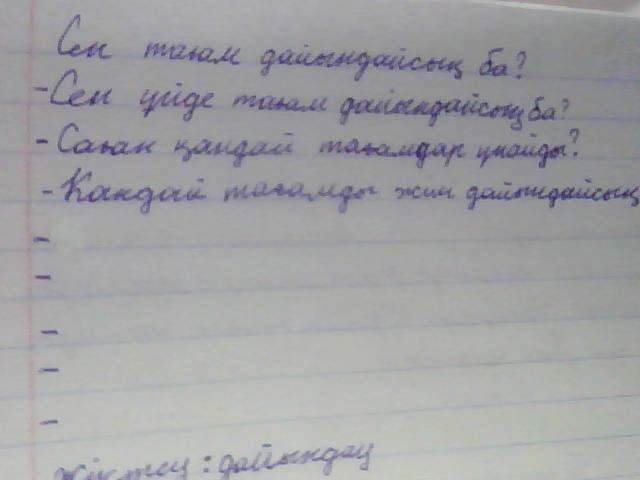 Сен тағам дайындайсың ба?
-Сен үйде тағам дайындайсың ба?
-Саған қандай тағамдар ұнайды?
-Қандай тағамды жиі дайындайсың
-
-
-
-
-
Жіктеу: дайындау